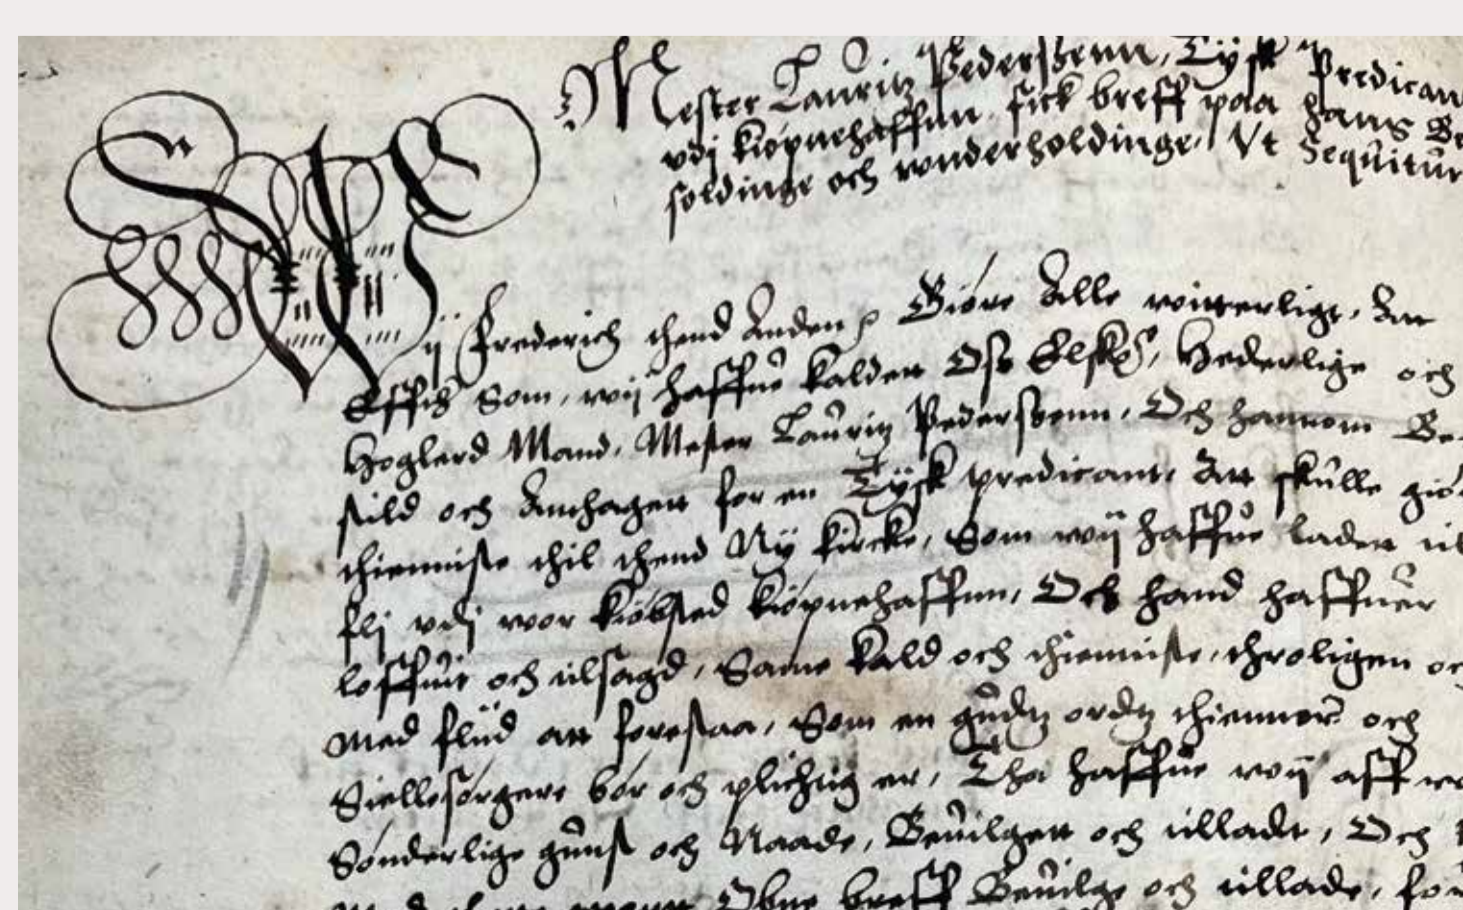 Mester Lauritz Pederssenn, Tysk Predican
vdj kiøpnehaffnn fick breff paa hans Be
soldinge och wnderholdinge, Vt Sequitur
Wij Frederich thend Anden Giøre Alle witterligt, Att
Effther som, wij haffue kaldett Oss Elskl, Hederlige och
Høglerd Mand, Mester Lauritz Pederssenn, Och hannom Be
stild och Anthagett for en Tysk predicant, Att skulle giø
thienniste thil thend Ny kircke, Som wij haffue ladett til
flj vdj wor kiøbsted kiøpnehaffnn, Och hand haffuer
loffuit och tilsagd, Same kald och thienniste, throligen oc
Med fliid att forestaa, Som en gudtz ordtz thiennere och
Siellesørgere bør och plichtig er, Tha haffue wij aff wo
Sønderlige gunst och Naade, Beuilgett och tilladt, Och
Obne breff Beuilge och tillade, for